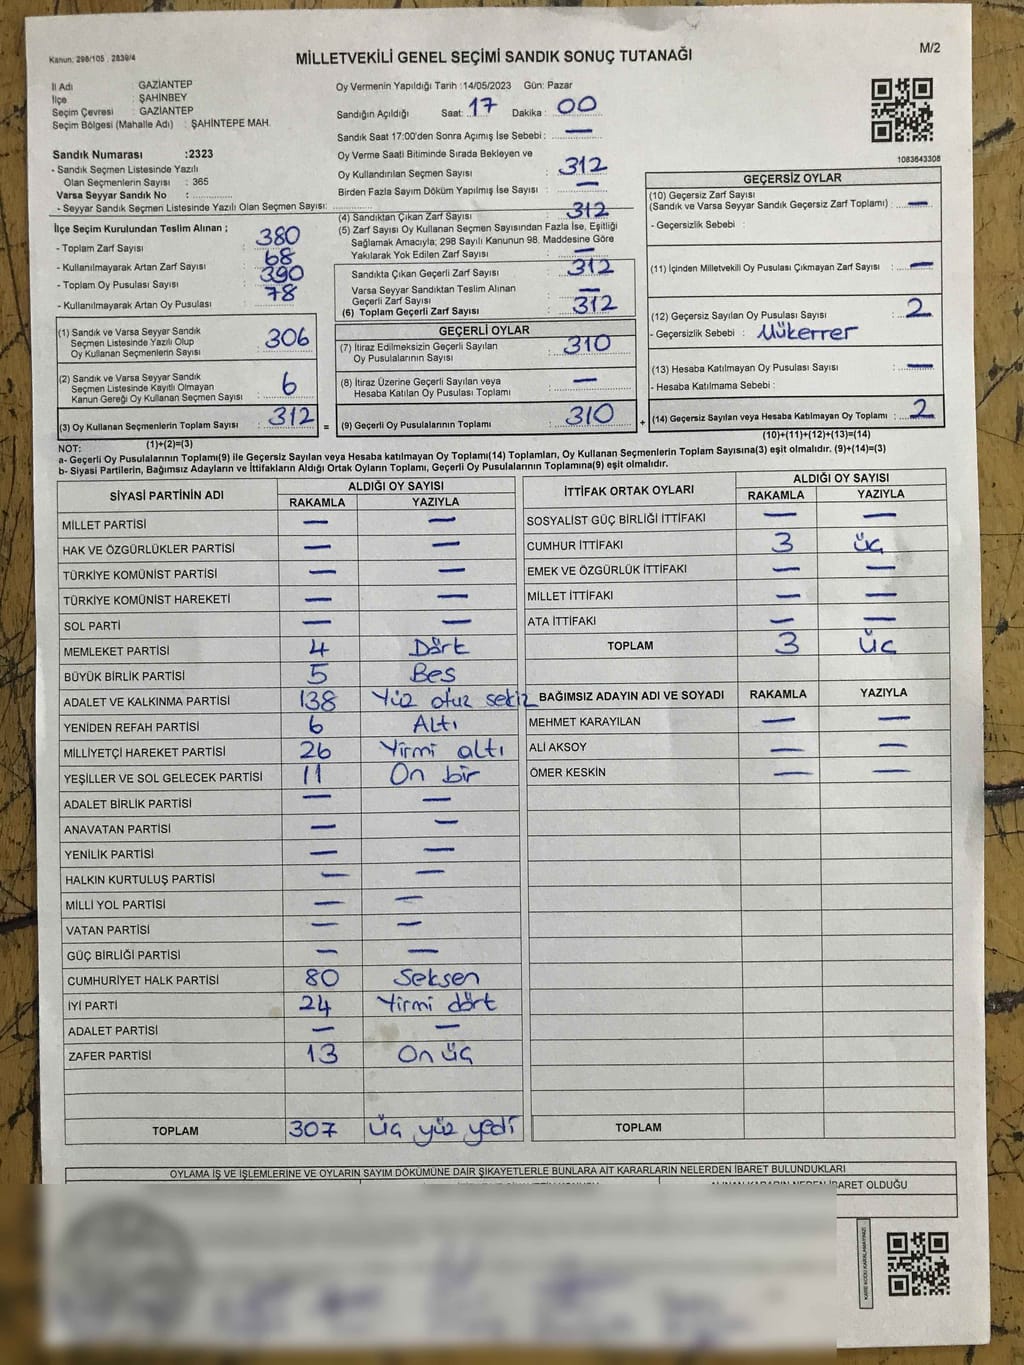 Kanun: 298/105 , 2839/4
M/2
MİLLETVEKİLİ GENEL SEÇİMİ SANDIK SONUÇ TUTANAĞI
İl Adı : GAZİANTEP
İlçe : ŞAHİNBEY
Seçim Çevresi : GAZİANTEP
Seçim Bölgesi (Mahalle Adı) : ŞAHİNTEPE MAH.
Sandık Numarası :2323
- Sandık Seçmen Listesinde Yazılı
Olan Seçmenlerin Sayısı : 365
Varsa Seyyar Sandık No :
- Seyyar Sandık Seçmen Listesinde Yazılı Olan Seçmen Sayısı:
Oy Vermenin Yapıldığı Tarih :14/05/2023 Gün: Pazar
Sandığın Açıldığı Saat: 17 Dakika: 00
Sandık Saat 17:00'den Sonra Açımış İse Sebebi : —
Oy Verme Saati Bitiminde Sırada Bekleyen ve
Oy Kullandırılan Seçmen Sayısı : 312
Birden Fazla Sayım Döküm Yapılmış İse Sayısı : —
1083643308
İlçe Seçim Kurulundan Teslim Alınan ;
- Toplam Zarf Sayısı : 380
- Kullanılmayarak Artan Zarf Sayısı : 68
- Toplam Oy Pusulası Sayısı : 390
- Kullanılmayarak Artan Oy Pusulası : 78
(1) Sandık ve Varsa Seyyar Sandık
Seçmen Listesinde Yazılı Olup
Oy Kullanan Seçmenlerin Sayısı : 306
(2) Sandık ve Varsa Seyyar Sandık
Seçmen Listesinde Kayıtlı Olmayan
Kanun Gereği Oy Kullanan Seçmen Sayısı : 6
(3) Oy Kullanan Seçmenlerin Toplam Sayısı : 312
(1)+(2)=(3)
(4) Sandıktan Çıkan Zarf Sayısı : 312
(5) Zarf Sayısı Oy Kullanan Seçmen Sayısından Fazla İse, Eşitliği
Sağlamak Amacıyla; 298 Sayılı Kanunun 98. Maddesine Göre
Yakılarak Yok Edilen Zarf Sayısı : —
Sandıkta Çıkan Geçerli Zarf Sayısı : 312
Varsa Seyyar Sandıktan Teslim Alınan
Geçerli Zarf Sayısı : —
(6) Toplam Geçerli Zarf Sayısı : 312
GEÇERLİ OYLAR
(7) İtiraz Edilmeksizin Geçerli Sayılan
Oy Pusulalarının Sayısı : 310
(8) İtiraz Üzerine Geçerli Sayılan veya
Hesaba Katılan Oy Pusulası Toplamı : —
= (9) Geçerli Oy Pusulalarının Toplamı : 310 +
GEÇERSİZ OYLAR
(10) Geçersiz Zarf Sayısı
(Sandık ve Varsa Seyyar Sandık Geçersiz Zarf Toplamı) : —
- Geçersizlik Sebebi :
(11) İçinden Milletvekili Oy Pusulası Çıkmayan Zarf Sayısı : —
(12) Geçersiz Sayılan Oy Pusulası Sayısı : 2
- Geçersizlik Sebebi : Mükerrer
(13) Hesaba Katılmayan Oy Pusulası Sayısı : —
- Hesaba Katılmama Sebebi :
(14) Geçersiz Sayılan veya Hesaba Katılmayan Oy Toplamı : 2
(10)+(11)+(12)+(13)=(14)
NOT:
a- Geçerli Oy Pusulalarının Toplamı(9) ile Geçersiz Sayılan veya Hesaba katılmayan Oy Toplamı(14) Toplamları, Oy Kullanan Seçmenlerin Toplam Sayısına(3) eşit olmalıdır. (9)+(14)=(3)
b- Siyasi Partilerin, Bağımsız Adayların ve İttifakların Aldığı Ortak Oyların Toplamı, Geçerli Oy Pusulalarının Toplamına(9) eşit olmalıdır.
SİYASİ PARTİNİN ADI ALDIĞI OY SAYISI
RAKAMLA YAZIYLA
MİLLET PARTİSİ — —
HAK VE ÖZGÜRLÜKLER PARTİSİ — —
TÜRKİYE KOMÜNİST PARTİSİ — —
TÜRKİYE KOMÜNİST HAREKETİ — —
SOL PARTİ — —
MEMLEKET PARTİSİ 4 Dört
BÜYÜK BİRLİK PARTİSİ 5 Beş
ADALET VE KALKINMA PARTİSİ 138 Yüz otuz sekiz
YENİDEN REFAH PARTİSİ 6 Altı
MİLLİYETÇİ HAREKET PARTİSİ 26 Yirmi altı
YEŞİLLER VE SOL GELECEK PARTİSİ 11 On bir
ADALET BİRLİK PARTİSİ — —
ANAVATAN PARTİSİ — —
YENİLİK PARTİSİ — —
HALKIN KURTULUŞ PARTİSİ — —
MİLLİ YOL PARTİSİ — —
VATAN PARTİSİ — —
GÜÇ BİRLİĞİ PARTİSİ — —
CUMHURİYET HALK PARTİSİ 80 Seksen
İYİ PARTİ 24 Yirmi dört
ADALET PARTİSİ — —
ZAFER PARTİSİ 13 On üç
TOPLAM 307 üç yüz yedi
İTTİFAK ORTAK OYLARI ALDIĞI OY SAYISI
RAKAMLA YAZIYLA
SOSYALİST GÜÇ BİRLİĞİ İTTİFAKI — —
CUMHUR İTTİFAKI 3 üç
EMEK VE ÖZGÜRLÜK İTTİFAKI — —
MİLLET İTTİFAKI — —
ATA İTTİFAKI — —
TOPLAM 3 üç
BAĞIMSIZ ADAYIN ADI VE SOYADI RAKAMLA YAZIYLA
MEHMET KARAYILAN — —
ALİ AKSOY — —
ÖMER KESKİN — —
TOPLAM
OYLAMA İŞ VE İŞLEMLERİNE VE OYLARIN SAYIM DÖKÜMÜNE DAİR ŞİKAYETLERLE BUNLARA AİT KARARLARIN NELERDEN İBARET BULUNDUKLARI
ALINAN KARARIN NEDEN İBARET OLDUĞU
KARE KODU KARALAMAYINIZ